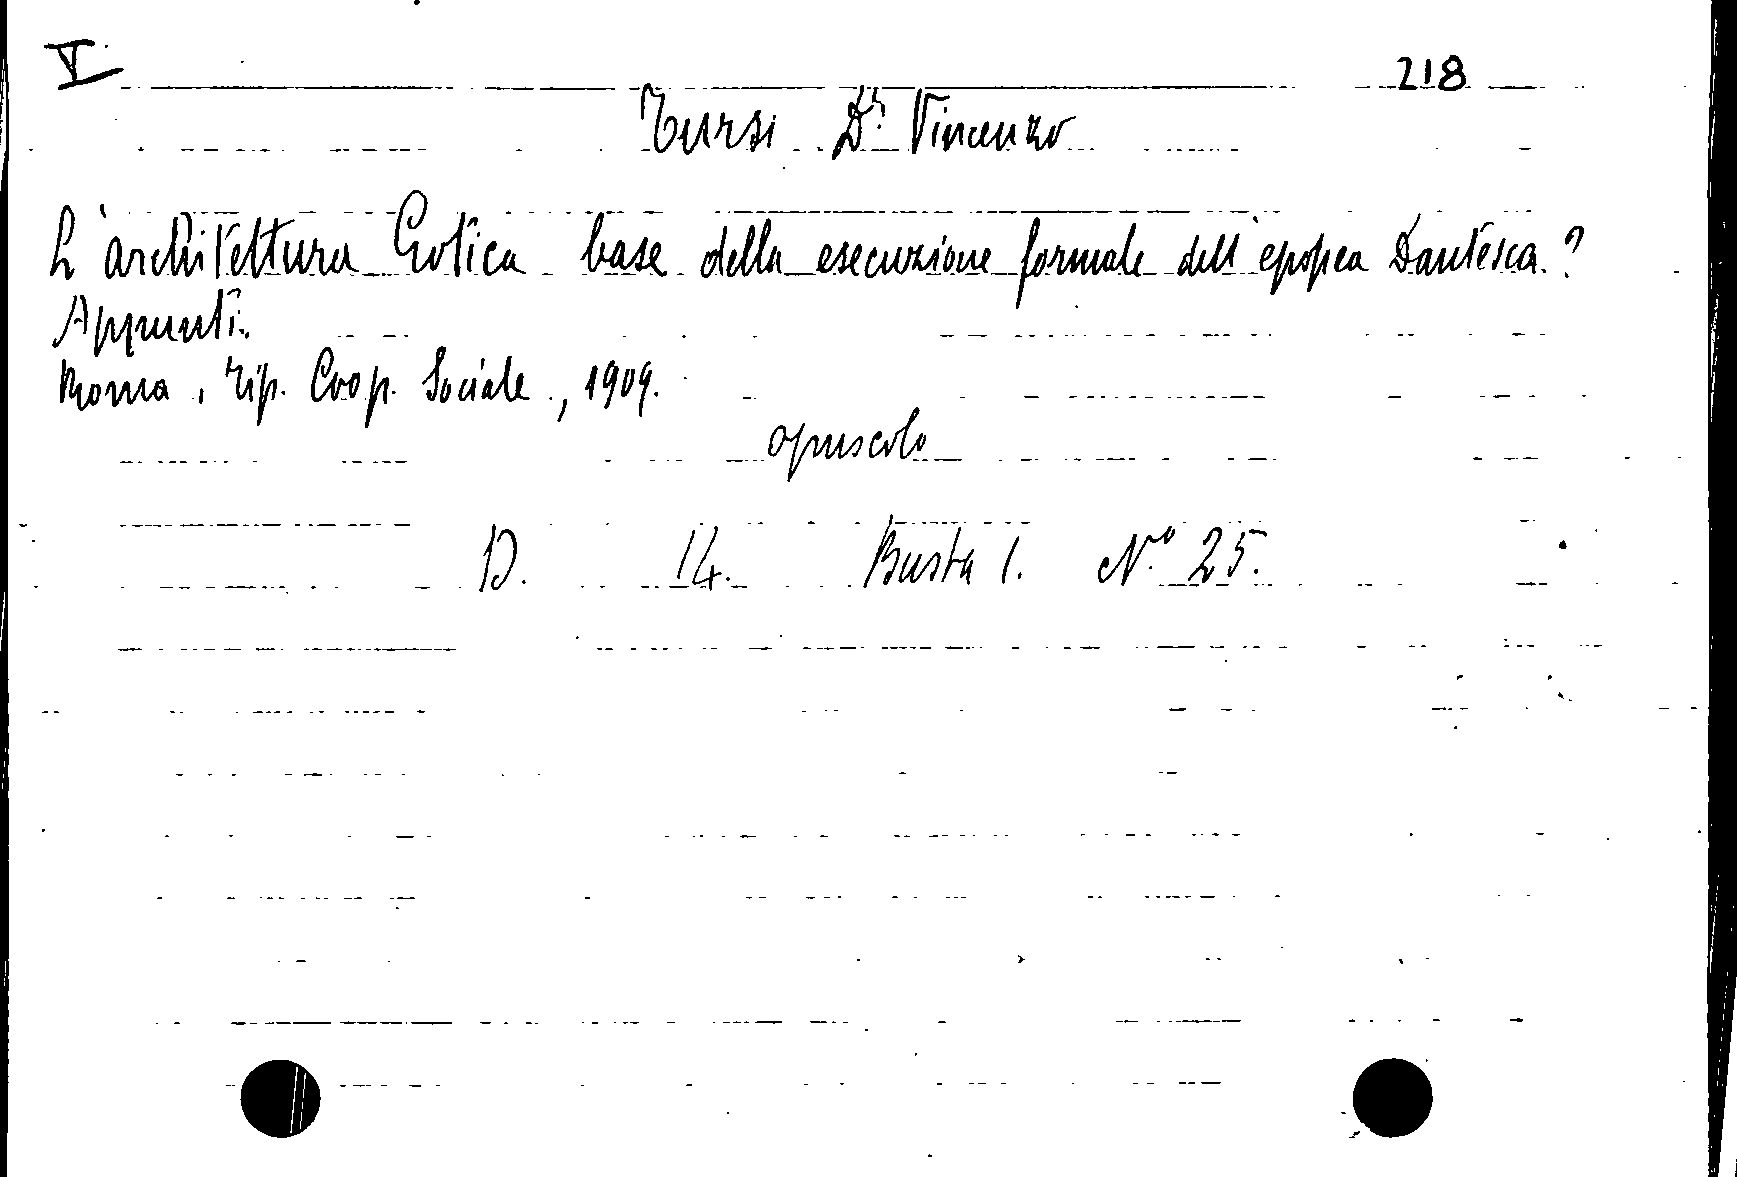 V 218
Tursi Dr. Vincenzo
L'architettura Gotica base della esecuzione formale dell'epopea Dantesca?
Appunti.
Roma, Tip. Coop. Sociale, 1909.
opuscolo
D. 14. Busta 1. N.° 25.